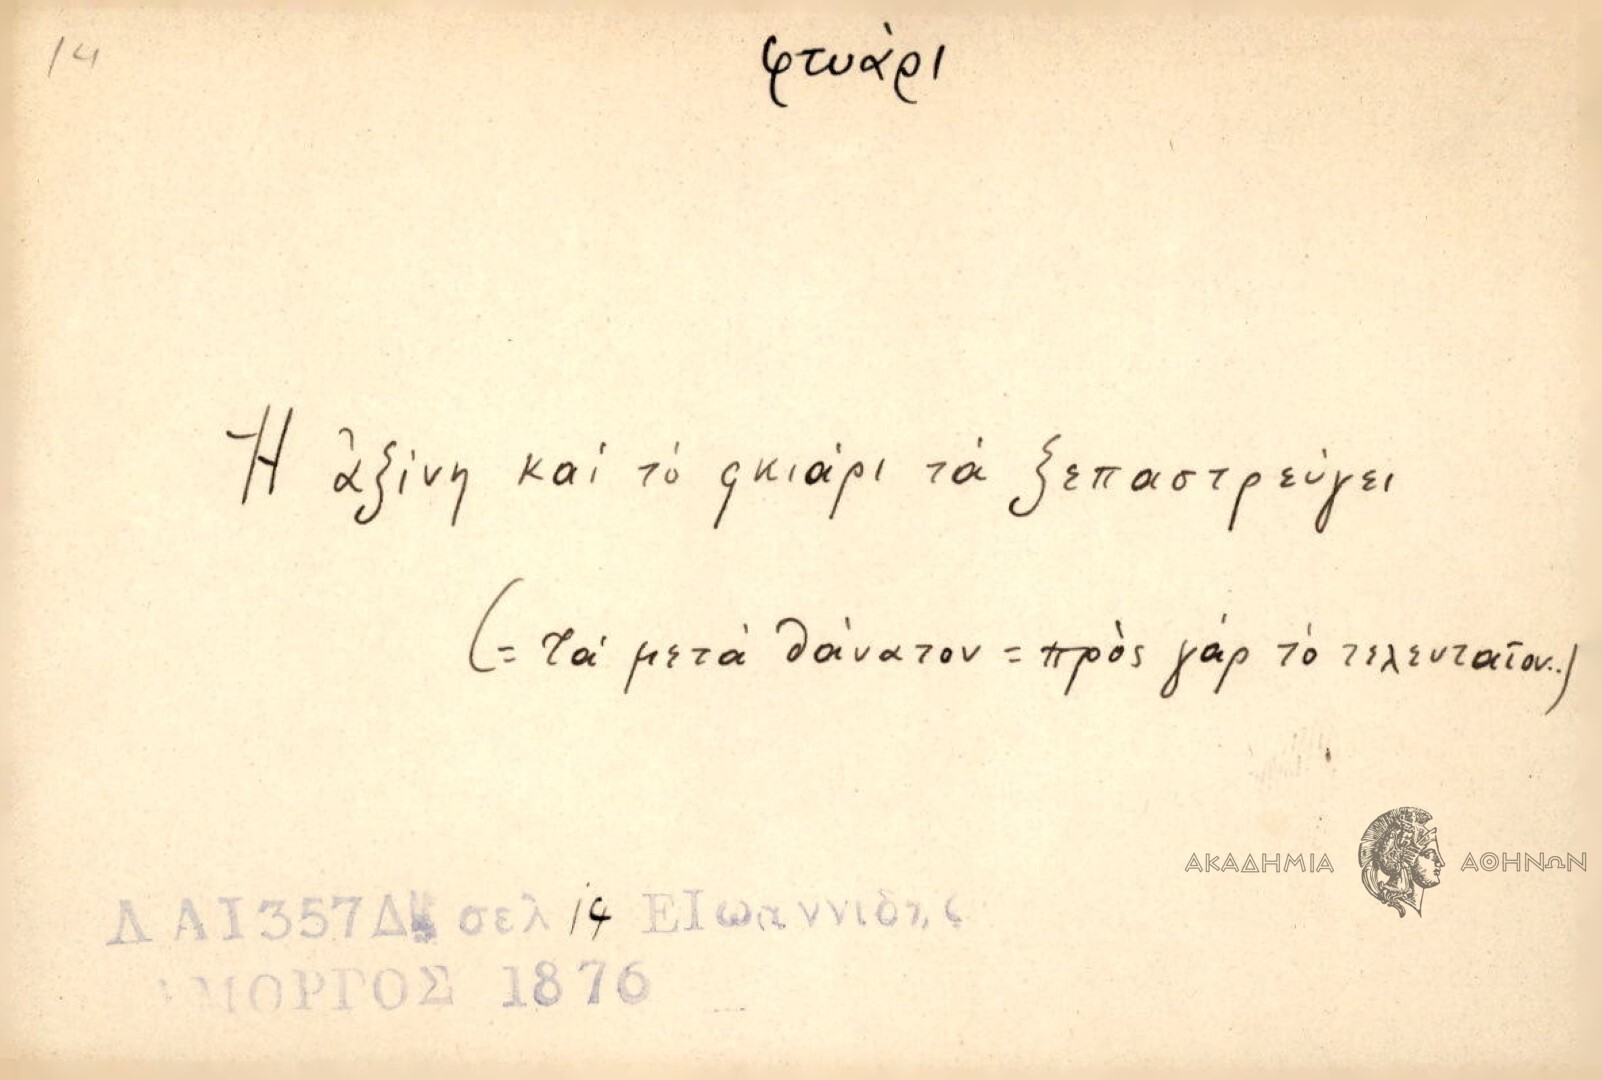 14
φτυάρι
Ἡ ἀξίνη καί τό φκιάρι τά ξεπαστρεύγει
(= τά μετά θάνατον = πρὸς γάρ τό τελευταῖον..)
ΑΚΑΔΗΜΙΑ ΑΘΗΝΩΝ
Λ Α Ι 357Δ σελ 14 ΕΙωαννιδης
ΑΜΟΡΓΟΣ 1876